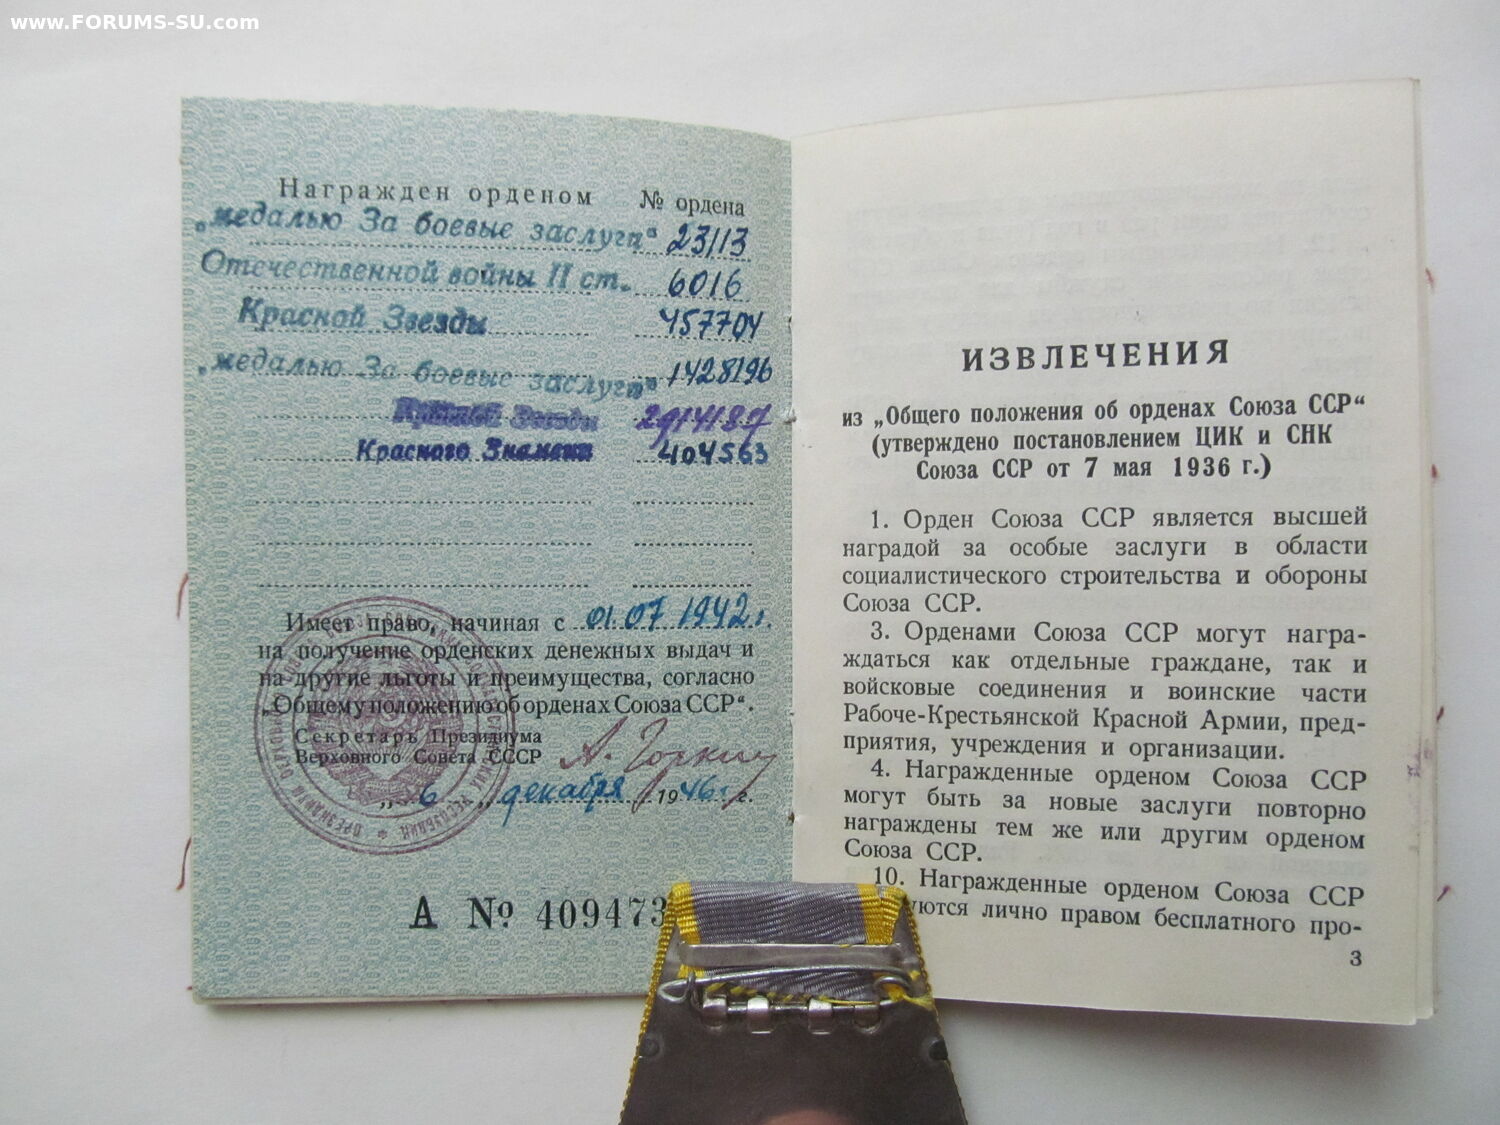 www.FORUMS-SU.com
Награжден орденом № ордена
„медалью За боевые заслуги" 23113
Отечественной войны II ст. 6016
Красной Звезды 457704
„медалью За боевые заслуги" 1428196
Красной Звезды 2914187
Красного Знамени 404563
Имеет право, начиная с 01.07 1942г.
на получение орденских денежных выдач и
на другие льготы и преимущества, согласно
„Общему положению об орденах Союза ССР".
Секретарь Президиума
Верховного Совета СССР А. Горкин
„ 6 „ декабря 1946 г.
А № 409473
ИЗВЛЕЧЕНИЯ
из „Общего положения об орденах Союза ССР"
(утверждено постановлением ЦИК и СНК
Союза ССР от 7 мая 1936 г.)
1. Орден Союза ССР является высшей
наградой за особые заслуги в области
социалистического строительства и обороны
Союза ССР.
3. Орденами Союза ССР могут награ-
ждаться как отдельные граждане, так и
войсковые соединения и воинские части
Рабоче-Крестьянской Красной Армии, пред-
приятия, учреждения и организации.
4. Награжденные орденом Союза ССР
могут быть за новые заслуги повторно
награждены тем же или другим орденом
Союза ССР.
10. Награжденные орденом Союза ССР
уются лично правом бесплатного про-
3